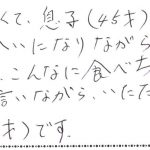 くて、息子(45才)
いになりながら
、こんなに食べち
言いながら、いただ
才)です。